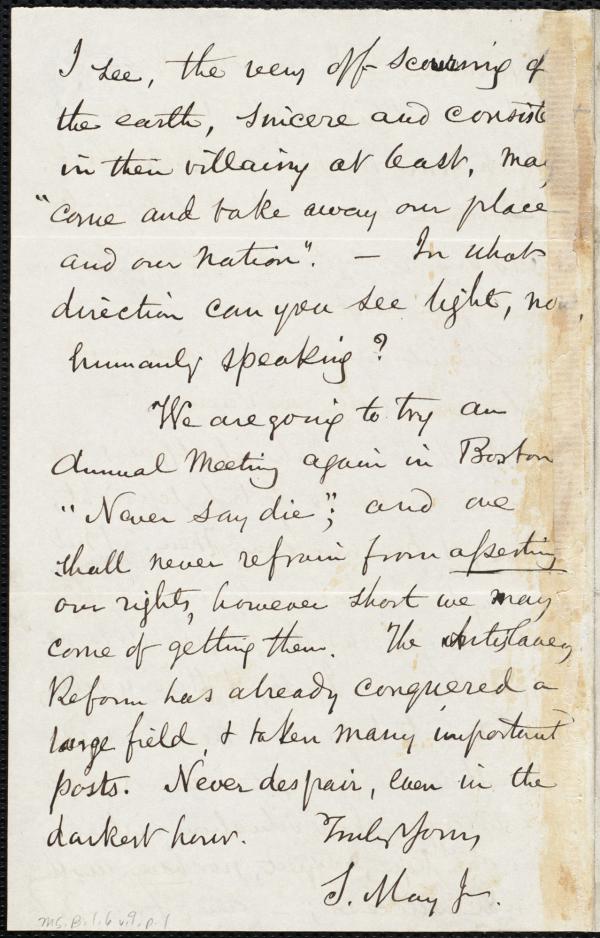 I see, the very off-scouring of
the earth, sincere and consiste
in their villainy at least, may
"come and take away our place
and our nation". — In what
direction can you see light, now,
humanly speaking?
We are going to try an
Annual Meeting again in Boston
"Never say die"; and we
shall never refrain from asserting
our rights, however short we may
come of getting them. The Antislavery
Reform has already conquered a
large field, & taken many important
posts. Never despair, even in the
darkest hour. Truly Yours
S. May Jr.
MS. B. 1. 6 v. 9. p. 1